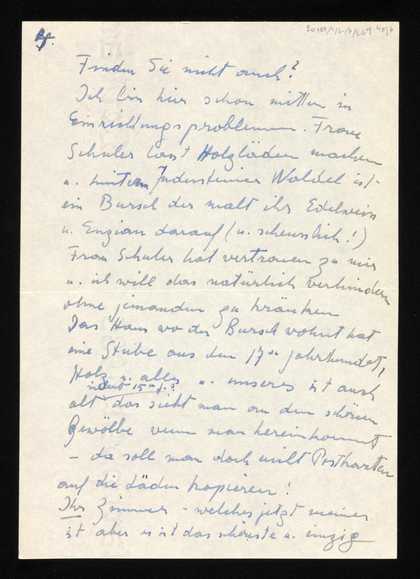 Finden Sie nicht auch?
Ich bin hier schon mitten in
Einrichtungsproblemen. Frau
Schuler lässt Holzläden machen
u. hinterm Waldel ist
ein Bursch der malt ihr Edelweiss
u. Enzian darauf (u. scheusslich!)
Frau Schuler hat vertrauen zu mir
u. ich will das natürlich verhindern
ohne jemanden zu kränken
Das Haus wo der Bursch wohnt hat
eine Stube aus dem 17ten Jahrhundert,
Holz u. alles u. unseres ist auch
alt das sieht man an dem schönen
Gewölbe wenn man hereinkommt
– da soll man doch nicht Postkarten
auf die Läden kopieren!
Ihr Zimmer – welches jetzt meines
ist aber es ist das schönste u. einzig